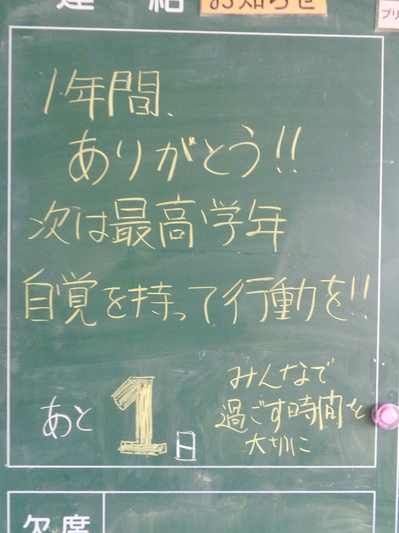 連絡 お知らせ
プリ
1年間、
ありがとう!!
次は最高学年
自覚を持って行動を!!
あと1日
みんなで
過ごす時間を
大切に
欠席